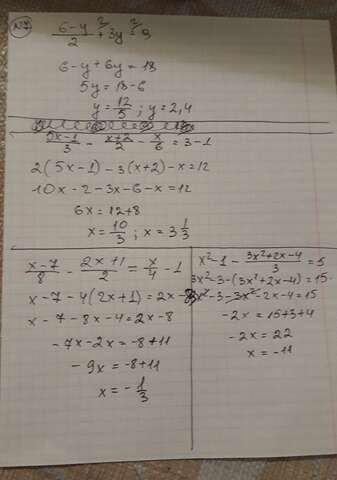 №7
(6-y)/2 + 3y = 9
6-y+6y = 18
5y = 18-6
y = 12/5 ; y = 2,4
(5x-1)/3 - (x+2)/2 - x/6 = 3-1
2(5x-1)-3(x+2)-x=12
10x-2-3x-6-x=12
6x = 12+8
x = 10/3 ; x = 3 1/3
(x-7)/8 - (2x+1)/2 = x/4 - 1
x-7-4(2x+1)=2x-8
x-7-8x-4=2x-8
-7x-2x = -8+11
-9x = -8+11
x = -1/3
x²-1 - (3x²+2x-4)/3 = 5
3x²-3-(3x²+2x-4)=15
3x²-3-3x²-2x-4=15
-2x = 15+3+4
-2x = 22
x = -11